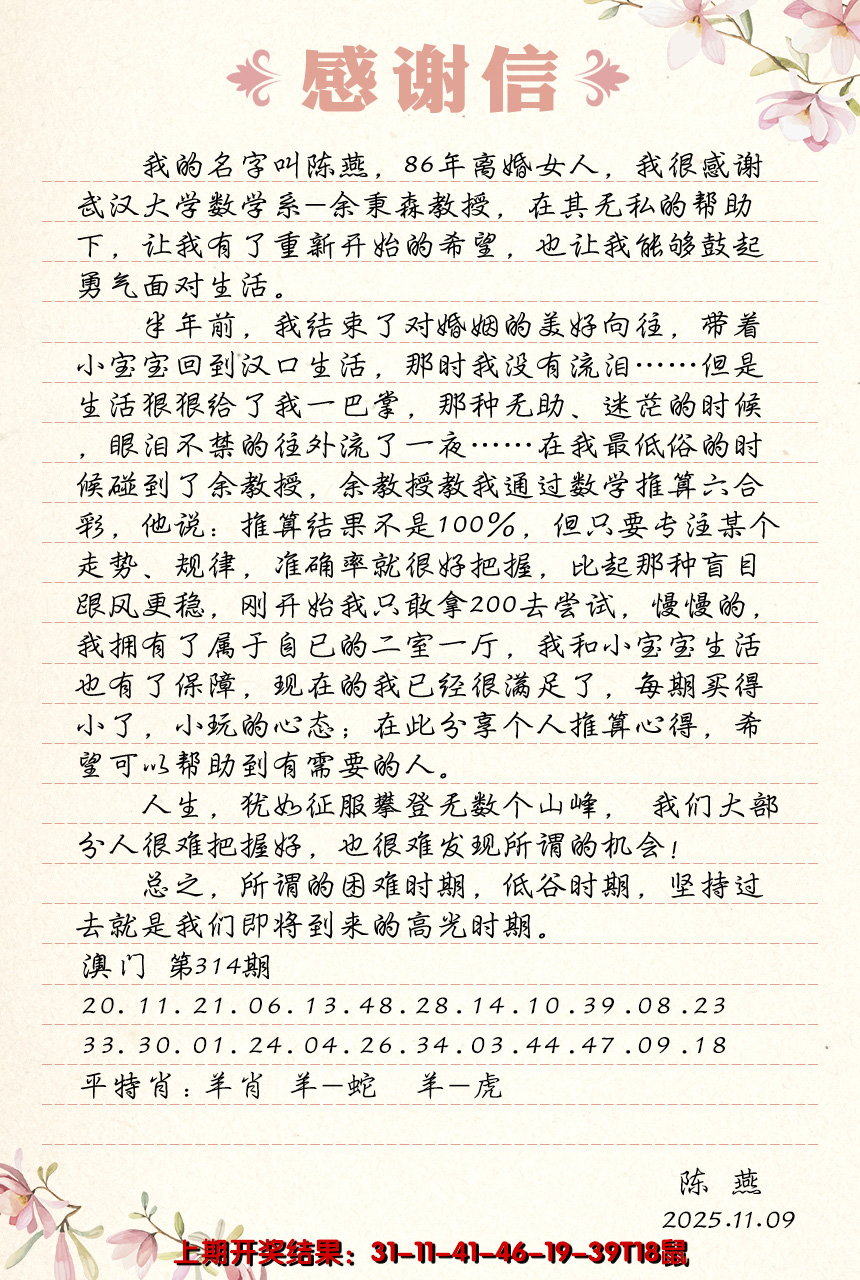 感谢信
我的名字叫陈燕，86年离婚女人，我很感谢
武汉大学数学系—余秉森教授，在其无私的帮助
下，让我有了重新开始的希望，也让我能够鼓起
勇气面对生活。
半年前，我结束了对婚姻的美好向往，带着
小宝宝回到汉口生活，那时我没有流泪……但是
生活狠狠给了我一巴掌，那种无助、迷茫的时候
，眼泪不禁的往外流了一夜……在我最低俗的时
候碰到了余教授，余教授教我通过数学推算六合
彩，他说：推算结果不是100%，但只要专注某个
走势、规律，准确率就很好把握，比起那种盲目
跟风更稳，刚开始我只敢拿200去尝试，慢慢的，
我拥有了属于自已的二室一厅，我和小宝宝生活
也有了保障，现在的我已经很满足了，每期买得
小了，小玩的心态；在此分享个人推算心得，希
望可以帮助到有需要的人。
人生，犹如征服攀登无数个山峰， 我们大部
分人很难把握好，也很难发现所谓的机会！
总之，所谓的困难时期，低谷时期，坚持过
去就是我们即将到来的高光时期。
澳门 第314期
20.11.21.06.13.48.28.14.10.39.08.23
33.30.01.24.04.26.34.03.44.47.09.18
平特肖：羊肖 羊—蛇 羊—虎
陈 燕
2025.11.09
上期开奖结果：31-11-41-46-19-39T18鼠